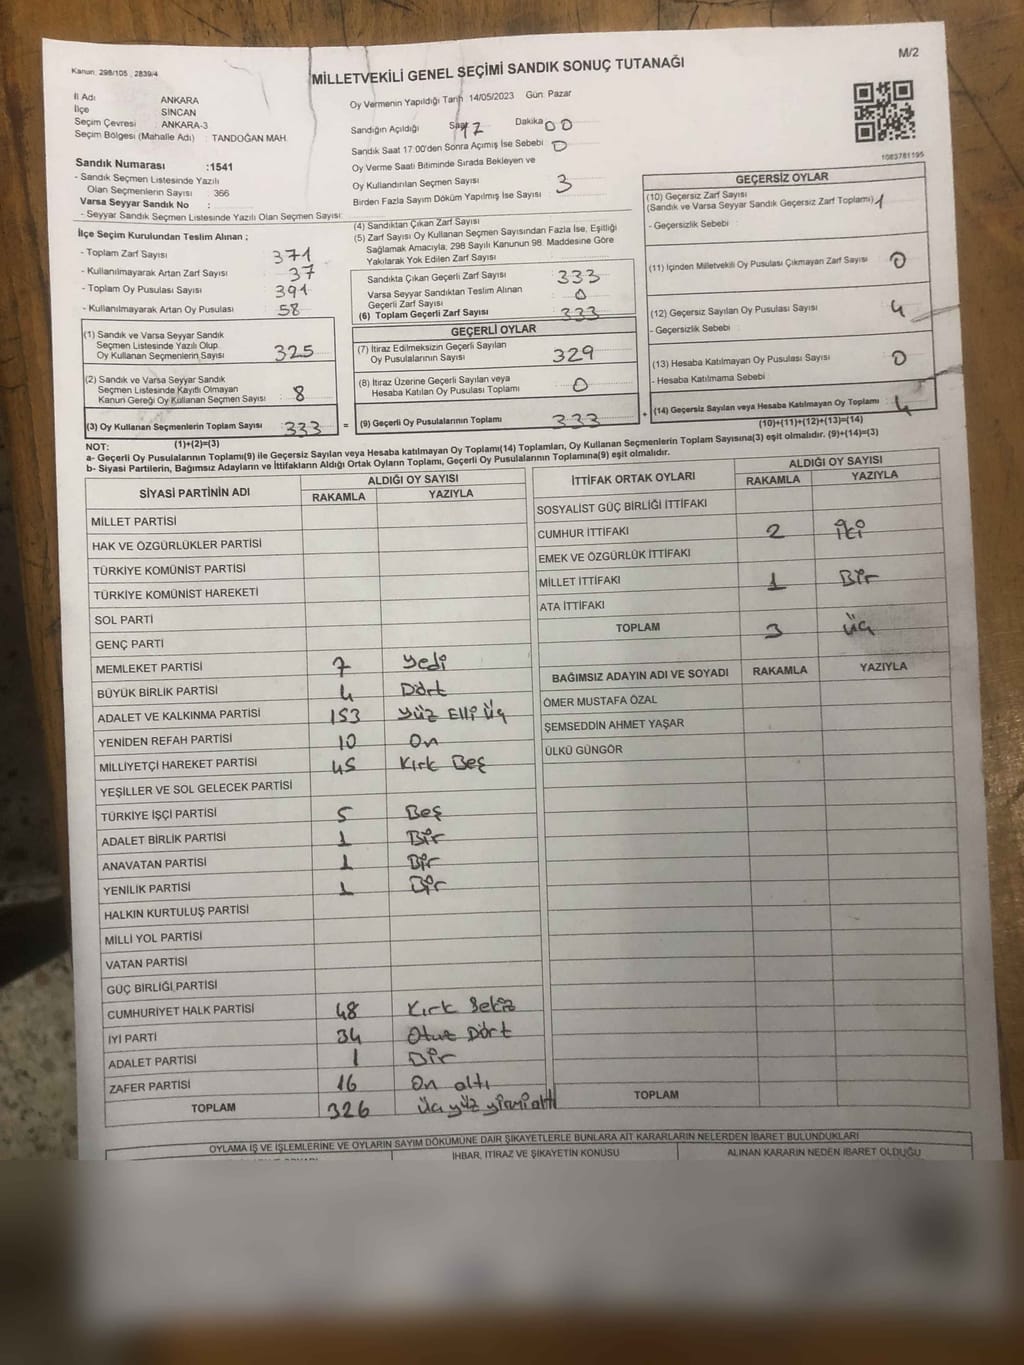 Kanun: 298/105 , 2839/4
M/2
MİLLETVEKİLİ GENEL SEÇİMİ SANDIK SONUÇ TUTANAĞI
İl Adı ANKARA
İlçe SİNCAN
Seçim Çevresi ANKARA-3
Seçim Bölgesi (Mahalle Adı) : TANDOĞAN MAH.
Sandık Numarası :1541
- Sandık Seçmen Listesinde Yazılı
Olan Seçmenlerin Sayısı : 366
Varsa Seyyar Sandık No :
- Seyyar Sandık Seçmen Listesinde Yazılı Olan Seçmen Sayısı:
Oy Vermenin Yapıldığı Tarih 14/05/2023 Gün: Pazar
Sandığın Açıldığı Saat 17 Dakika 00
Sandık Saat 17.00'den Sonra Açımış İse Sebebi 0
Oy Verme Saati Bitiminde Sırada Bekleyen ve
Oy Kullandırılan Seçmen Sayısı 3
Birden Fazla Sayım Döküm Yapılmış İse Sayısı
1083781195
İlçe Seçim Kurulundan Teslim Alınan ;
- Toplam Zarf Sayısı 371
- Kullanılmayarak Artan Zarf Sayısı 37
- Toplam Oy Pusulası Sayısı 391
- Kullanılmayarak Artan Oy Pusulası 58
(1) Sandık ve Varsa Seyyar Sandık
Seçmen Listesinde Yazılı Olup
Oy Kullanan Seçmenlerin Sayısı 325
(2) Sandık ve Varsa Seyyar Sandık
Seçmen Listesinde Kayıtlı Olmayan
Kanun Gereği Oy Kullanan Seçmen Sayısı : 8
(3) Oy Kullanan Seçmenlerin Toplam Sayısı 333 =
(1)+(2)=(3)
(4) Sandıktan Çıkan Zarf Sayısı
(5) Zarf Sayısı Oy Kullanan Seçmen Sayısından Fazla İse, Eşitliği
Sağlamak Amacıyla, 298 Sayılı Kanunun 98. Maddesine Göre
Yakılarak Yok Edilen Zarf Sayısı
Sandıkta Çıkan Geçerli Zarf Sayısı 333
Varsa Seyyar Sandıktan Teslim Alınan
Geçerli Zarf Sayısı 0
(6) Toplam Geçerli Zarf Sayısı 333
GEÇERLİ OYLAR
(7) İtiraz Edilmeksizin Geçerli Sayılan
Oy Pusulalarının Sayısı 329
(8) İtiraz Üzerine Geçerli Sayılan veya
Hesaba Katılan Oy Pusulası Toplamı 0
(9) Geçerli Oy Pusulalarının Toplamı 333 +
GEÇERSİZ OYLAR
(10) Geçersiz Zarf Sayısı
(Sandık ve Varsa Seyyar Sandık Geçersiz Zarf Toplamı) 1
- Geçersizlik Sebebi :
(11) İçinden Milletvekili Oy Pusulası Çıkmayan Zarf Sayısı 0
(12) Geçersiz Sayılan Oy Pusulası Sayısı 4
- Geçersizlik Sebebi :
(13) Hesaba Katılmayan Oy Pusulası Sayısı 0
- Hesaba Katılmama Sebebi :
(14) Geçersiz Sayılan veya Hesaba Katılmayan Oy Toplamı 4
(10)+(11)+(12)+(13)=(14)
NOT:
a- Geçerli Oy Pusulalarının Toplamı(9) ile Geçersiz Sayılan veya Hesaba katılmayan Oy Toplamı(14) Toplamları, Oy Kullanan Seçmenlerin Toplam Sayısına(3) eşit olmalıdır. (9)+(14)=(3)
b- Siyasi Partilerin, Bağımsız Adayların ve İttifakların Aldığı Ortak Oyların Toplamı, Geçerli Oy Pusulalarının Toplamına(9) eşit olmalıdır.
SİYASİ PARTİNİN ADI ALDIĞI OY SAYISI
RAKAMLA YAZIYLA
MİLLET PARTİSİ
HAK VE ÖZGÜRLÜKLER PARTİSİ
TÜRKİYE KOMÜNİST PARTİSİ
TÜRKİYE KOMÜNİST HAREKETİ
SOL PARTİ
GENÇ PARTİ
MEMLEKET PARTİSİ 7 Yedi
BÜYÜK BİRLİK PARTİSİ 4 Dört
ADALET VE KALKINMA PARTİSİ 153 Yüz Elli Üç
YENİDEN REFAH PARTİSİ 10 On
MİLLİYETÇİ HAREKET PARTİSİ 45 Kırk Beş
YEŞİLLER VE SOL GELECEK PARTİSİ
TÜRKİYE İŞÇİ PARTİSİ 5 Beş
ADALET BİRLİK PARTİSİ 1 Bir
ANAVATAN PARTİSİ 1 Bir
YENİLİK PARTİSİ 1 Bir
HALKIN KURTULUŞ PARTİSİ
MİLLİ YOL PARTİSİ
VATAN PARTİSİ
GÜÇ BİRLİĞİ PARTİSİ
CUMHURİYET HALK PARTİSİ 48 Kırk Sekiz
İYİ PARTİ 34 Otuz Dört
ADALET PARTİSİ 1 Bir
ZAFER PARTİSİ 16 On altı
TOPLAM 326 Üç yüz yirmi altı
İTTİFAK ORTAK OYLARI ALDIĞI OY SAYISI
RAKAMLA YAZIYLA
SOSYALİST GÜÇ BİRLİĞİ İTTİFAKI
CUMHUR İTTİFAKI 2 İki
EMEK VE ÖZGÜRLÜK İTTİFAKI
MİLLET İTTİFAKI 1 Bir
ATA İTTİFAKI
TOPLAM 3 Üç
BAĞIMSIZ ADAYIN ADI VE SOYADI RAKAMLA YAZIYLA
ÖMER MUSTAFA ÖZAL
ŞEMSEDDİN AHMET YAŞAR
ÜLKÜ GÜNGÖR
TOPLAM
OYLAMA İŞ VE İŞLEMLERİNE VE OYLARIN SAYIM DÖKÜMÜNE DAİR ŞİKAYETLERLE BUNLARA AİT KARARLARIN NELERDEN İBARET BULUNDUKLARI
İHBAR, İTİRAZ VE ŞİKAYETİN KONUSU
ALINAN KARARIN NEDEN İBARET OLDUĞU